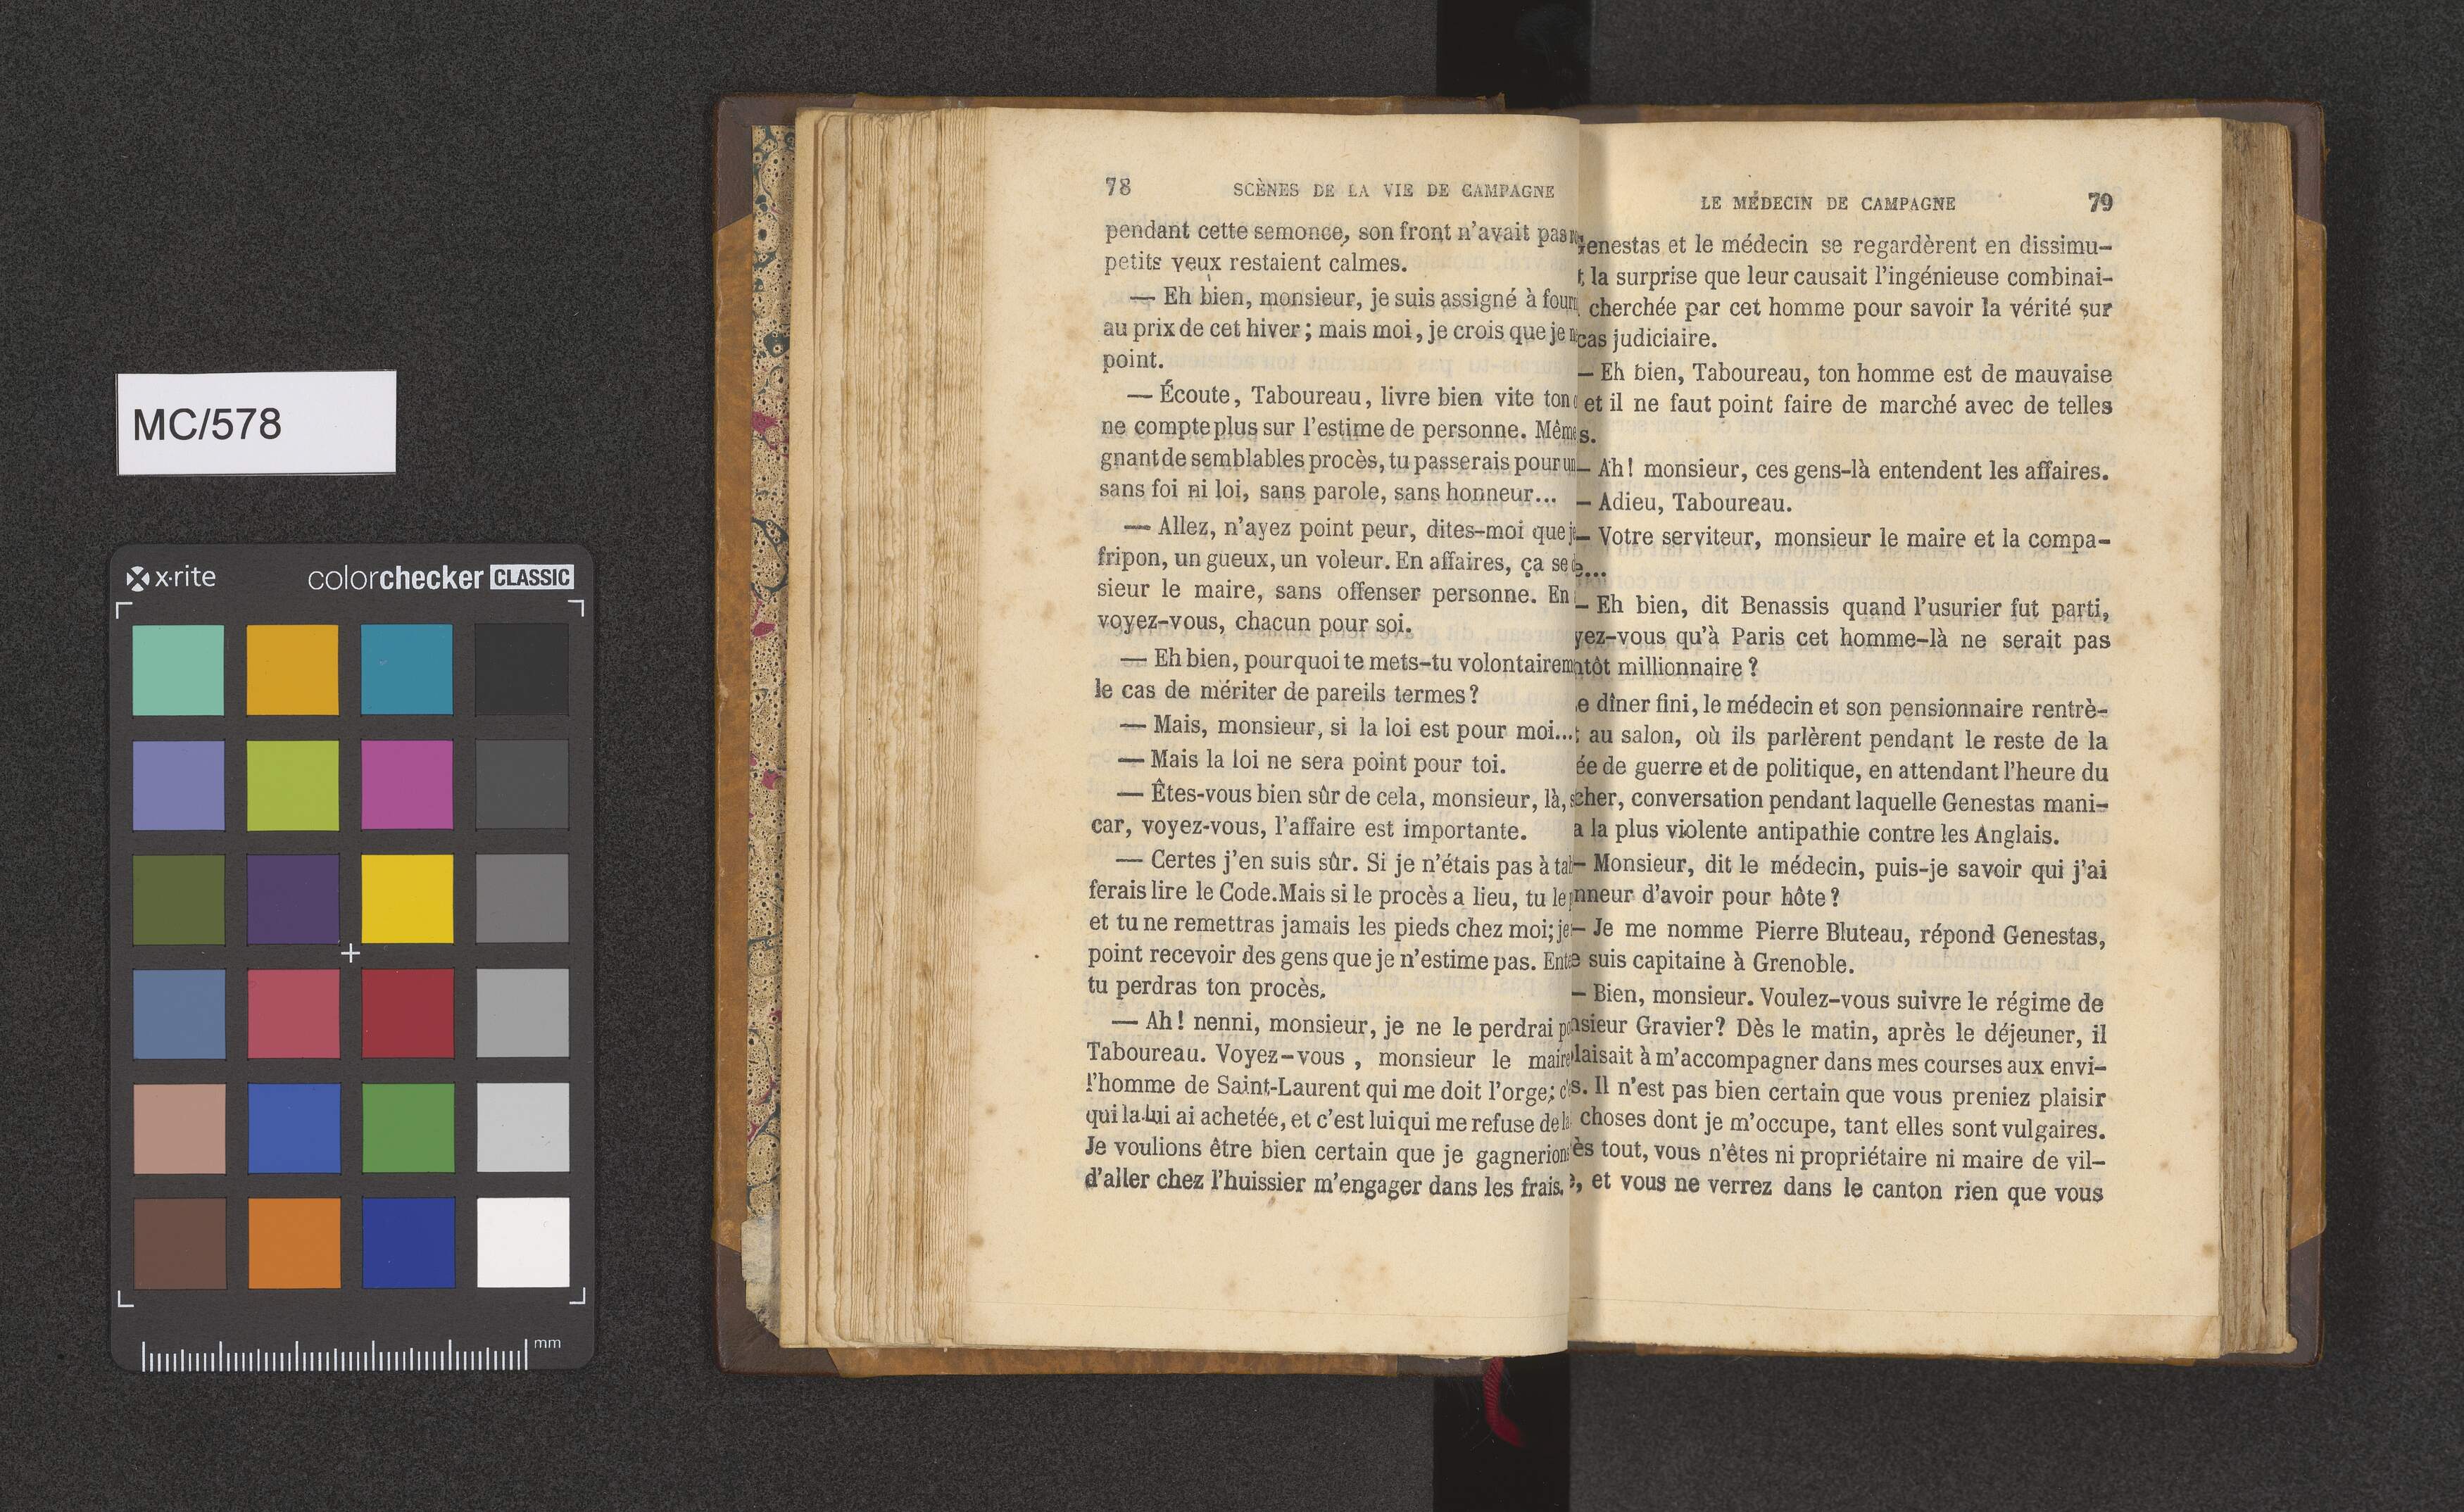 MC/578
x·rite
colorchecker CLASSIC
mm
78 SCÈNES DE LA VIE DE CAMPAGNE
pendant cette semonce, son front n'avait pas
petits yeux restaient calmes.
— Eh bien, monsieur, je suis assigné à
au prix de cet hiver ; mais moi, je crois que je
point.
— Écoute, Taboureau, livre bien vite ton
ne compte plus sur l'estime de personne. Même
gnant de semblables procès, tu passerais pour
sans foi ni loi, sans parole, sans honneur...
— Allez, n'ayez point peur, dites-moi que
fripon, un gueux, un voleur. En affaires, ça se
sieur le maire, sans offenser personne. En
voyez-vous, chacun pour soi.
— Eh bien, pourquoi te mets-tu
le cas de mériter de pareils termes ?
— Mais, monsieur, si la loi est pour moi...
— Mais la loi ne sera point pour toi.
— Êtes-vous bien sûr de cela, monsieur, là,
car, voyez-vous, l'affaire est importante.
— Certes j'en suis sûr. Si je n'étais pas à
ferais lire le Code. Mais si le procès a lieu, tu le
et tu ne remettras jamais les pieds chez moi; je
point recevoir des gens que je n'estime pas.
tu perdras ton procès.
— Ah ! nenni, monsieur, je ne le perdrai
Taboureau. Voyez-vous , monsieur le maire
l'homme de Saint-Laurent qui me doit l'orge;
qui la lui ai achetée, et c'est lui qui me refuse de
Je voulions être bien certain que je
d'aller chez l'huissier m'engager dans les frais.
LE MÉDECIN DE CAMPAGNE 79
Genestas et le médecin se regardèrent en dissimu-
la surprise que leur causait l'ingénieuse combinai-
cherchée par cet homme pour savoir la vérité sur
cas judiciaire.
— Eh bien, Taboureau, ton homme est de mauvaise
et il ne faut point faire de marché avec de telles
— Ah ! monsieur, ces gens-là entendent les affaires.
— Adieu, Taboureau.
— Votre serviteur, monsieur le maire et la compa-
...
— Eh bien, dit Benassis quand l'usurier fut parti,
yez-vous qu'à Paris cet homme-là ne serait pas
ntôt millionnaire ?
e dîner fini, le médecin et son pensionnaire rentrè-
au salon, où ils parlèrent pendant le reste de la
ée de guerre et de politique, en attendant l'heure du
cher, conversation pendant laquelle Genestas mani-
a la plus violente antipathie contre les Anglais.
— Monsieur, dit le médecin, puis-je savoir qui j'ai
nneur d'avoir pour hôte ?
— Je me nomme Pierre Bluteau, répond Genestas,
e suis capitaine à Grenoble.
— Bien, monsieur. Voulez-vous suivre le régime de
nsieur Gravier ? Dès le matin, après le déjeuner, il
laisait à m'accompagner dans mes courses aux envi-
s. Il n'est pas bien certain que vous preniez plaisir
choses dont je m'occupe, tant elles sont vulgaires.
ès tout, vous n'êtes ni propriétaire ni maire de vil-
, et vous ne verrez dans le canton rien que vous